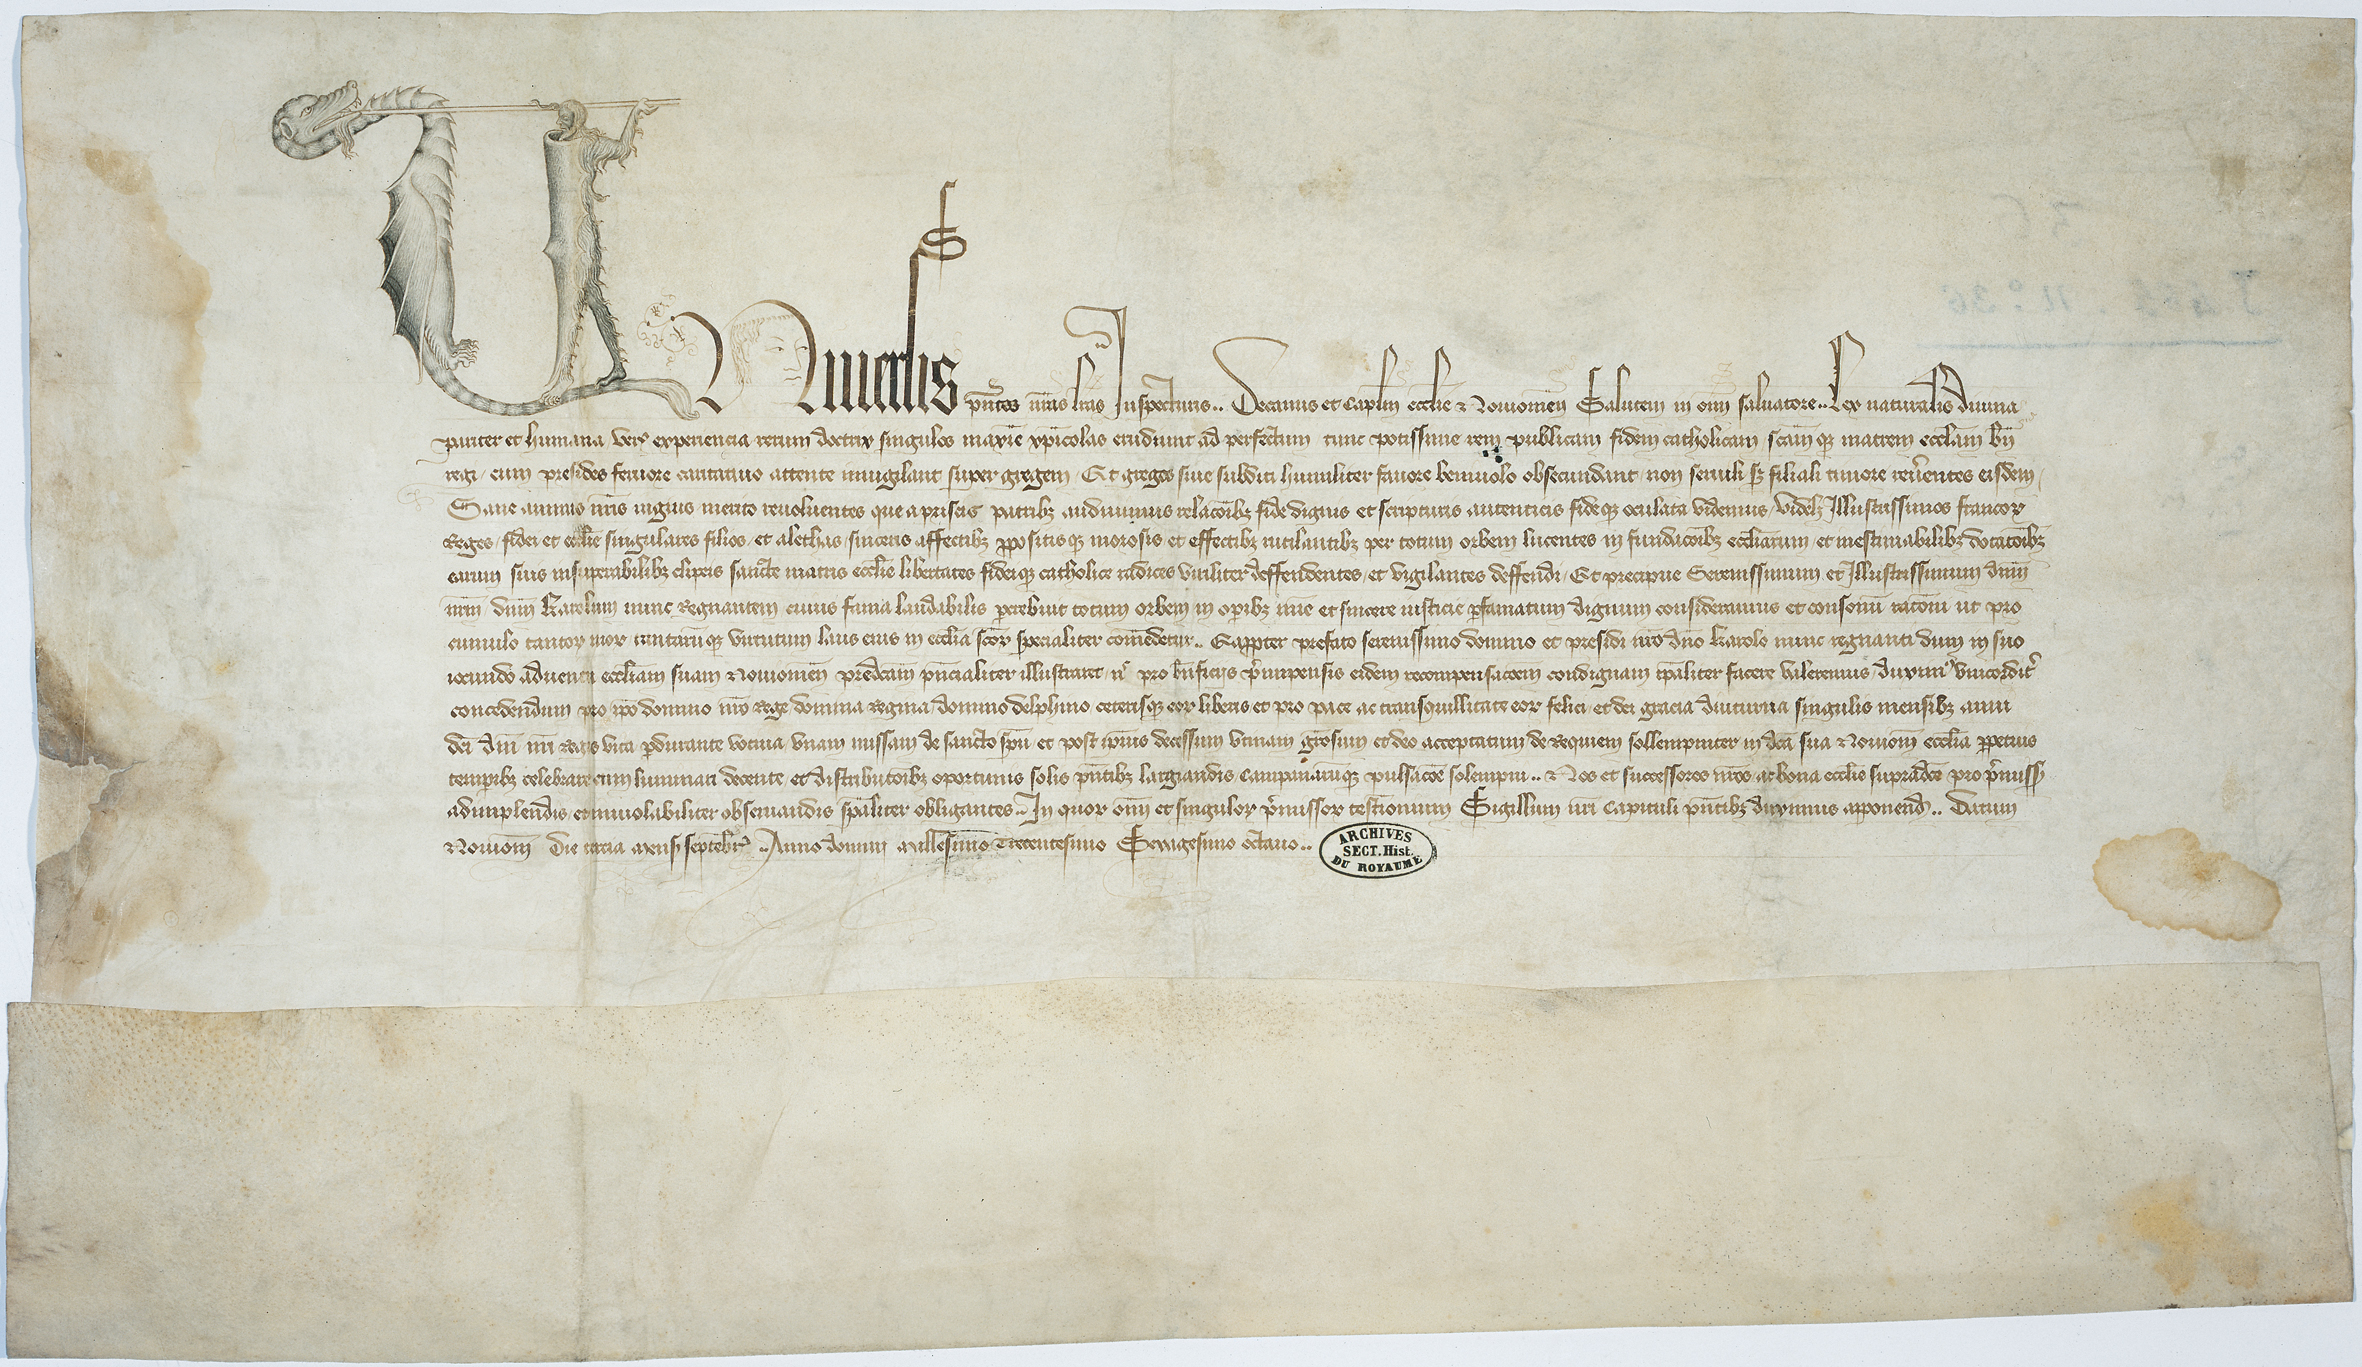 Universis pñtes nr̃as lr̃as Inspecturis.. Decanus et caplm ecclie Noviomeñ Salutem in omĩ salvatore.. Lex naturalis divina
pariter et humana experiencia rerum doctrix singulos maxĩe xp̃icolas erudiunt ad perfectum tunc potissime rem publicam fidem catholicam sc̃am q3 matrem eccl̃am
regi / cum presides fervore caritativo attente invigilant super gregem / Et greges sive subditi humiliter favore benivolo obsecundant / non servili s3 filiali timore rev̾entes eisdem /
Sane animis nr̃is iugius merito revolventes que a priscis patrib3 audivimus relac̃oib3 fide dignis et scripturis autenticis fideq3 oculata videmus / videl3 Illustrissimos francoꝝ
Reges / fidei et ecclie singulares filios / et alethas / sinceris affectib3 ꝓpositisq3 morosis et effectib3 rutilantib3 per totum orbem lucentes in fundac̃oib3 eccliarum / et inestimabilib3 dotac̃oib3
earum suis insuperabilib3 clipeis sancte matris ecclie libertates fideiq3 catholice radices viriliter deffendentes / et vigilantes deffendi / Et precipue Serenissimum et Illustrissimum dñm
nr̃m dñm Karolum nunc Regnantem cuius fama laudabilis perhibuit totum orbem / in operib3 et sincere iusticie ꝑfamatum dignum consideramus et consonũ rac̃oni ut pro
cumulo tantoꝝ virtutum laus eius in ecclia sc̃oꝝ specialiter com̃edetur.. Eaꝓpter prefato serenissimo domino et presidi nr̃o dño Karolo nunc regnanti dum in suo
iocundo adventu eccliam suam Noviomeñ pred̃cam illustraret / pro b̃nficiis p̃impensis eidem recompensac̃oem condignam facere valeremus / duximus
concedendum pro ip̃o domino nr̃o Rege domina Regina domino delphino ceterisq3 eoꝝ liberis et pro pace ac transquillitate eoꝝ felici / et dei gracia diuturna singulis mensib3 anni
dc̃i dñi nr̃i Regis vita ꝑdurante votiva / unam missam de sancto sp̃u et post ip̃ius decessum utinam gr̃osum et deo acceptatum de Requiem sollempniter in dc̃a sua Noviom̃ ecclia ꝑpetuis
temporib3 celebrare cum luminari decente et distributoib3 oportunis solis pñtib3 largiandis campanaruq3 pulsac̃oe solempni.. Nos et successores nr̃os / ac bona ecclie supradc̃e pro p̃missis
adimplendis / et inviolabiliter observandis sp̃aliter obligantes.. In quoꝝ om̃i et singuloꝝ p̃missoꝝ testimonium Sigillum nr̃i Capituli pñtib3 duximus apponend̃.. Datum
Noviom̃ Die tercia mensis septembr̃ .. Anno domini millesimo Trecentesimo Sexagesimo octavo..
ARCHIVES
SECT. Hist.
DU ROYAUME